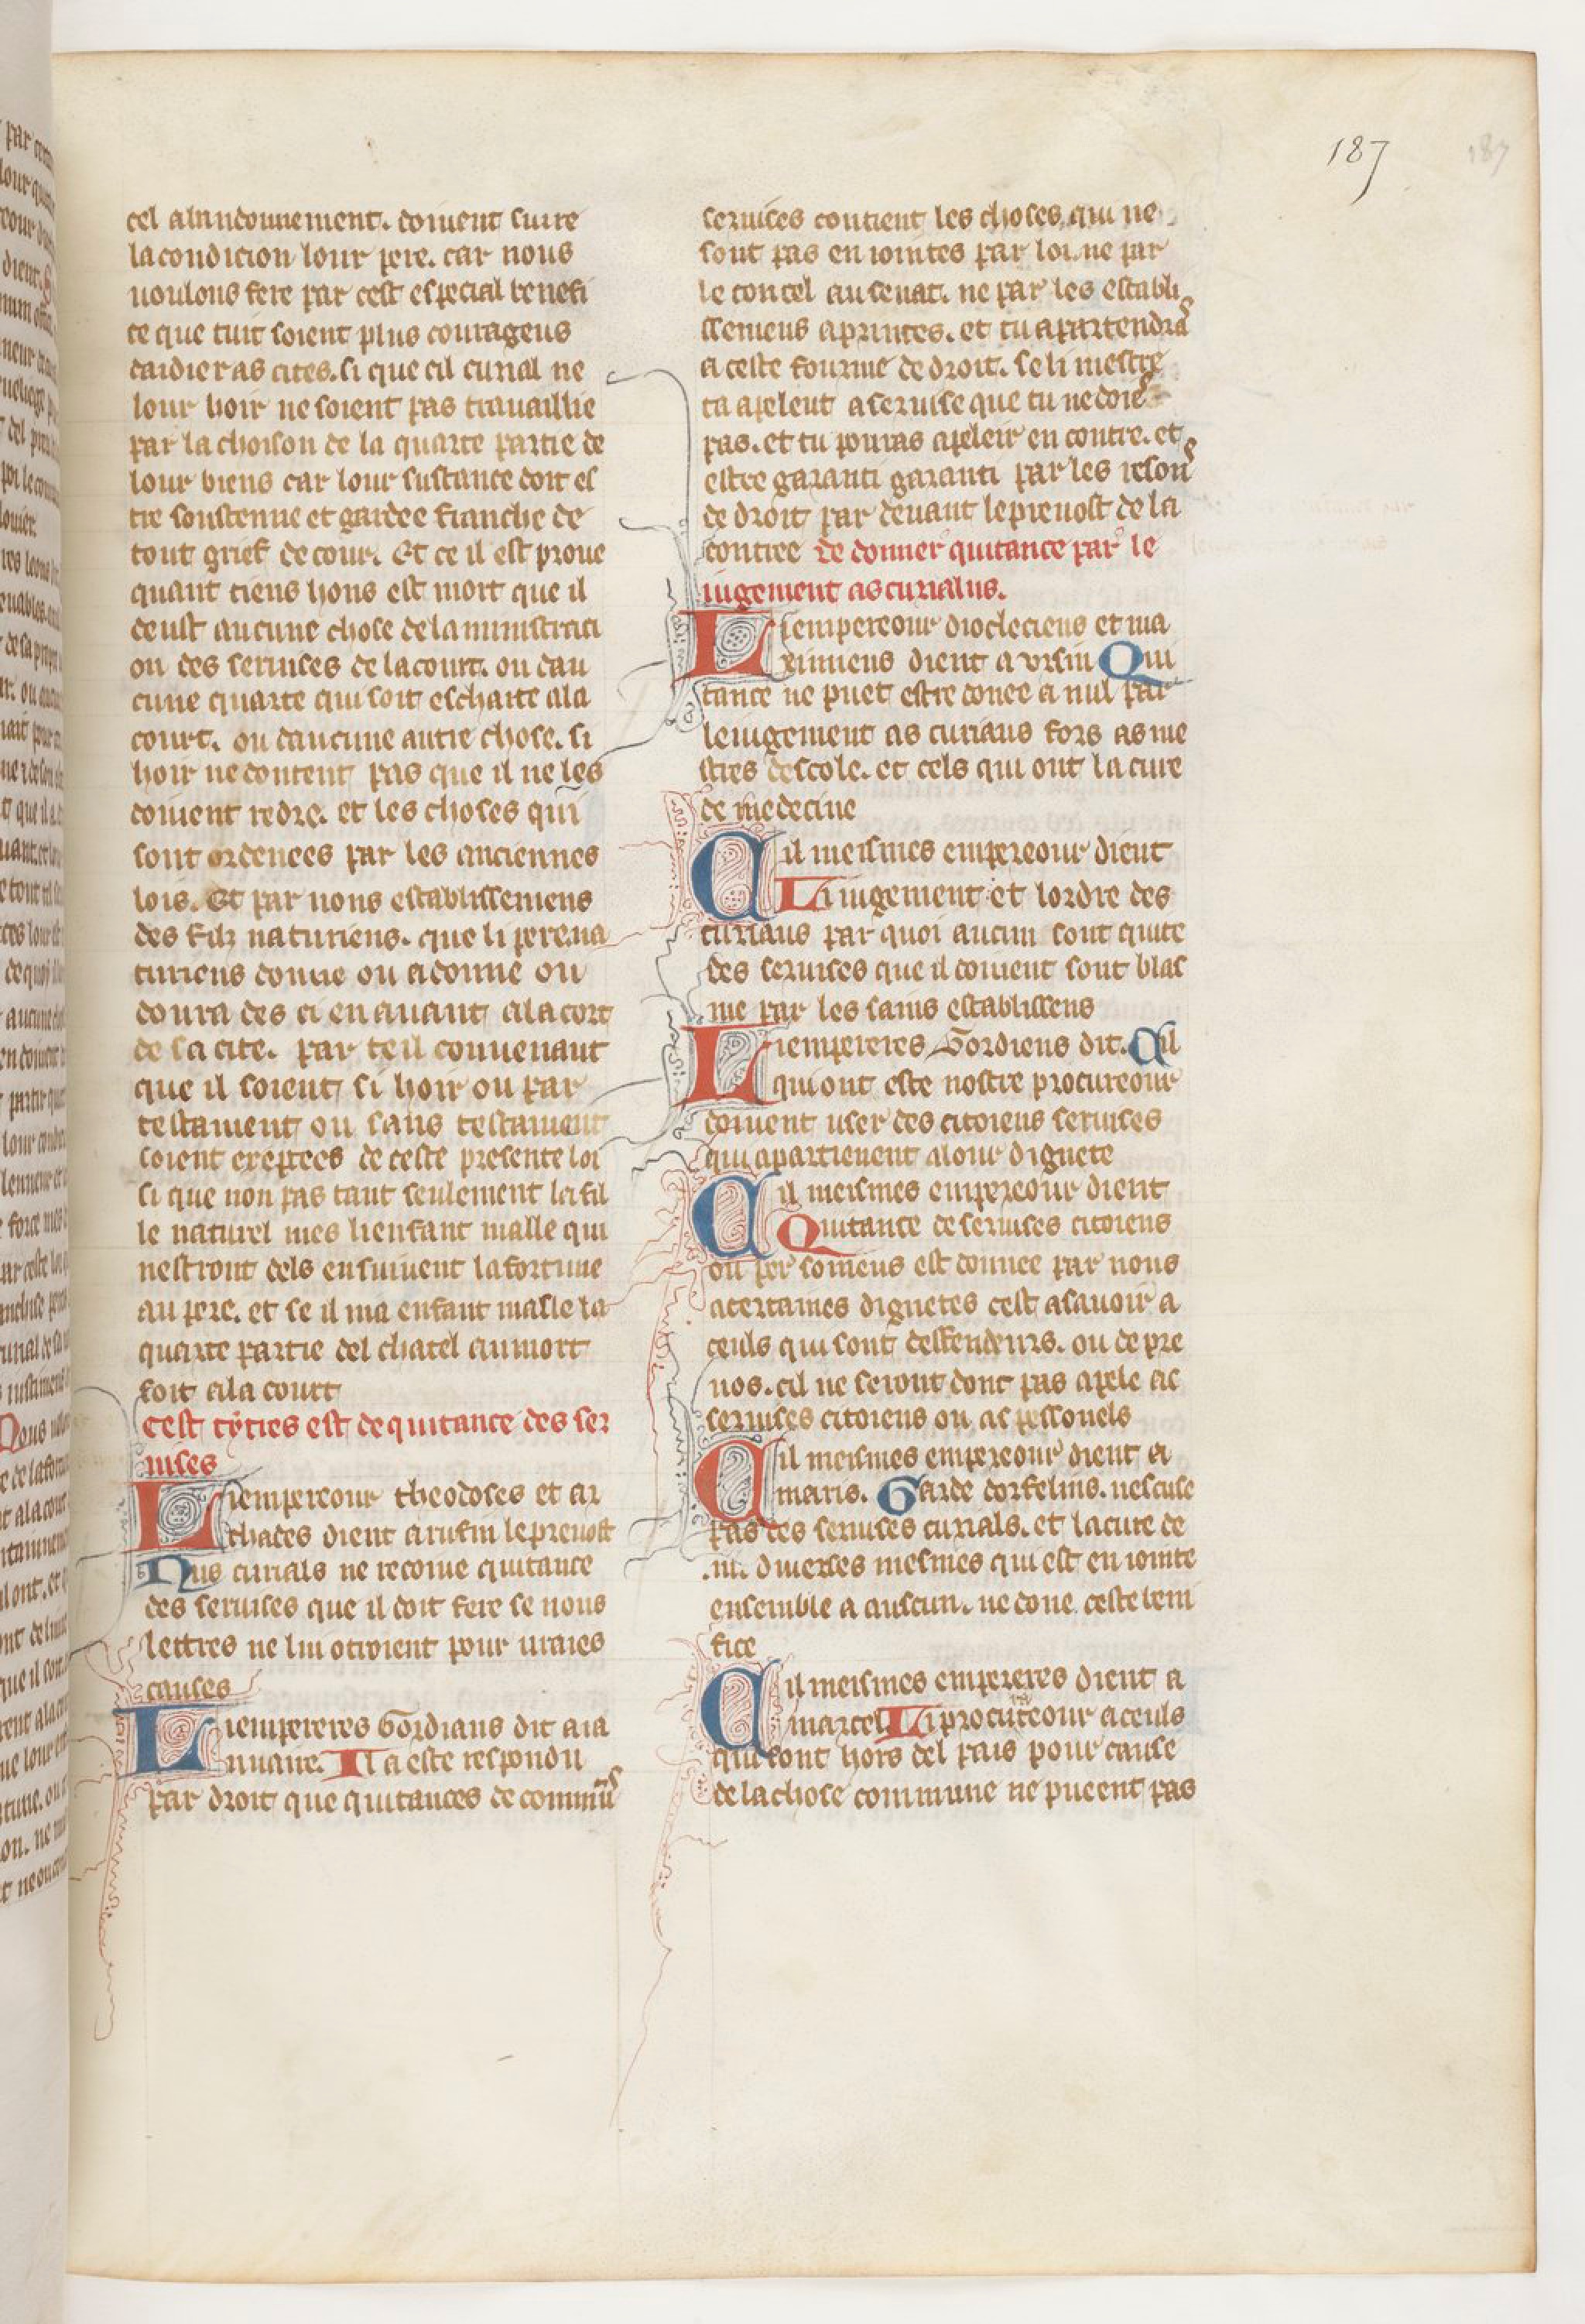 187
cel abandonnement. doiuent suire
la condicion lour pere. car nous
uoulons fere par cest especial benefi
ce que tuit soient plus courageus
daidier as cites. si que cil curial ne
lour hoir ne soient pas trauaillie
par lachoison de la quarte partie de
lour biens car lour sustance doit es
tre soustenue et gardee franche de
tout grief de court. Et ce il est proue
quant tiens hons est mort que il
deust aucune chose de laministraci
on des seruises de la court. ou dau
cune quarte qui soit escharte a la
court. ou daucune autre chose. si
hoir ne doutent pas que il ne les
doiuent redre. et les choses qui
sont ordenees par les anciennes
lois. Et par nous establissemens
des filz naturiens. que li pere na
turiens donne ou a donne ou
doura des ci en auant a la cort
de sa cite. par teil conuenant
que il soient si hoir ou par
testament ou sans testament
soient exeptees de ceste presente loi
si que non pas tant seulement la fil
le naturel mes li enfant malle qui
nestront dels ensuiuent la fortune
au pere. et se il ni a enfant masle la
quarte partie del chatel au mort
soit a la court
Cest tytres est de quitance des ser
uises
Li empereour theodoses et ar
chades dient a rufin le preuost
Nus curials ne recoiue quitance
des seruises que il doit fere se nous
lettres ne lui otroient pour uraies
causes
Li empereres Gordians dit a ia
nuaire. Il a este respondu
par droit que quitances de communs
seruices contient les choses qui ne
sont pas en iointes par loi. ne par
le concel au senat. ne par les establi
ssemens a princes. et tu apartendras
a ceste fourme de droit. se li mestre
ta apelent a seruise que tu ne doies
pas. et tu pouras apeleir en contre. et
estre garanti garanti par les resons
de droit par deuant le preuost de la
contree De donner quitance par le
iugement as curialus.
Li empereour diocleciens et ma
ximiens dient a ursin Qui
tance ne puet estre donee a nul par
le iugement as curiaus fors as me
stres descole. et cels qui ont la cure
de medecine
Cil meismes empereour dient
Li iugement et lordre des
curiaus par quoi aucun sont quite
des seruises que il doiuent sont blas
me par les sains establissens
Li empereres Gordiens dit. Cil
qui ont este nostre procureour
doiuent user des citoiens seruises
qui apartienent a lour dignete
Cil meismes empereour dient
Quitance de seruises citoiens
ou per soniens est donnee par nous
a certaines dignetes cest a sauoir a
ceuls qui sont deffendeurs. ou de pre
uos. cil ne seront dont pas apele as
seruises citoiens ou as pessonels
Cil meismes empereour dient a
maris. Garde dorfelins. nescuse
pas des seruises curials. et la cure de
.iii. diuerses mesmes qui est en iointe
ensemble a auscun. ne done ceste beni
fice
Cil meismes empereres dient a
marcel Li procureour a ceuls
qui sont hors del pais pour cause
de la chose commune ne pueent pas